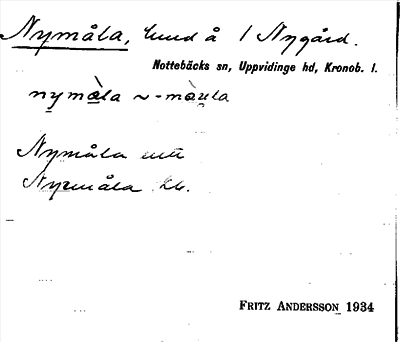 Nymåla, lund å 1 Nygård.
Nottebäcks sn, Uppvidinge hd, Kronob. l.
nymə̀la ~ -mə̀u̯la
Nymåla
Nymåla
FRITZ ANDERSSON 1934